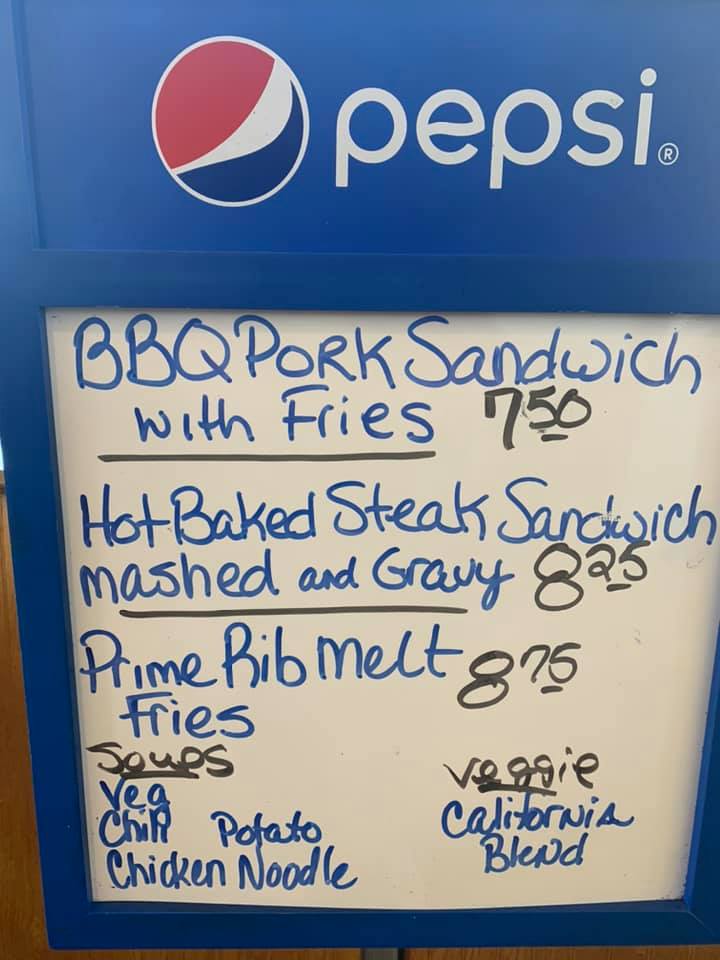 pepsi®
BBQ Pork Sandwich
with Fries 7.50
Hot Baked Steak Sandwich
mashed and Gravy 8.25
Prime Rib Melt 8.75
Fries
Soups
Veg
Chili Potato
Chicken Noodle
veggie
California
Blend